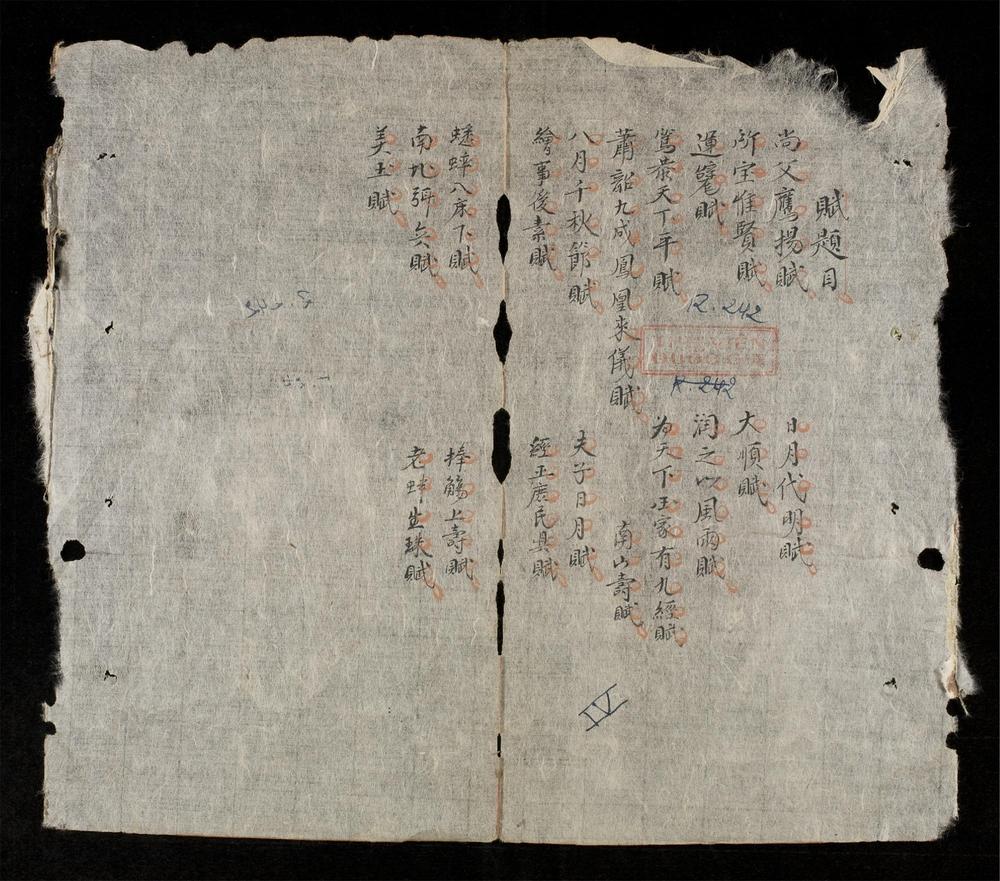 賦題目
尚父鷹揚賦
日月代明賦
所宝惟賢賦
大順賦
運甓賦
润之以風雨賦
篤恭天丁平賦
为天下国家有九經賦
蕭韶九成鳳凰來儀賦
南山壽賦
八月千秋節賦
夫子日月賦
繪事後素賦
經正庶民具賦
蟋蟀入床下賦
捧觴上壽賦
南九弭兵賦
老蚌生珠賦
美玉賦
R. 242
R. 242
IV